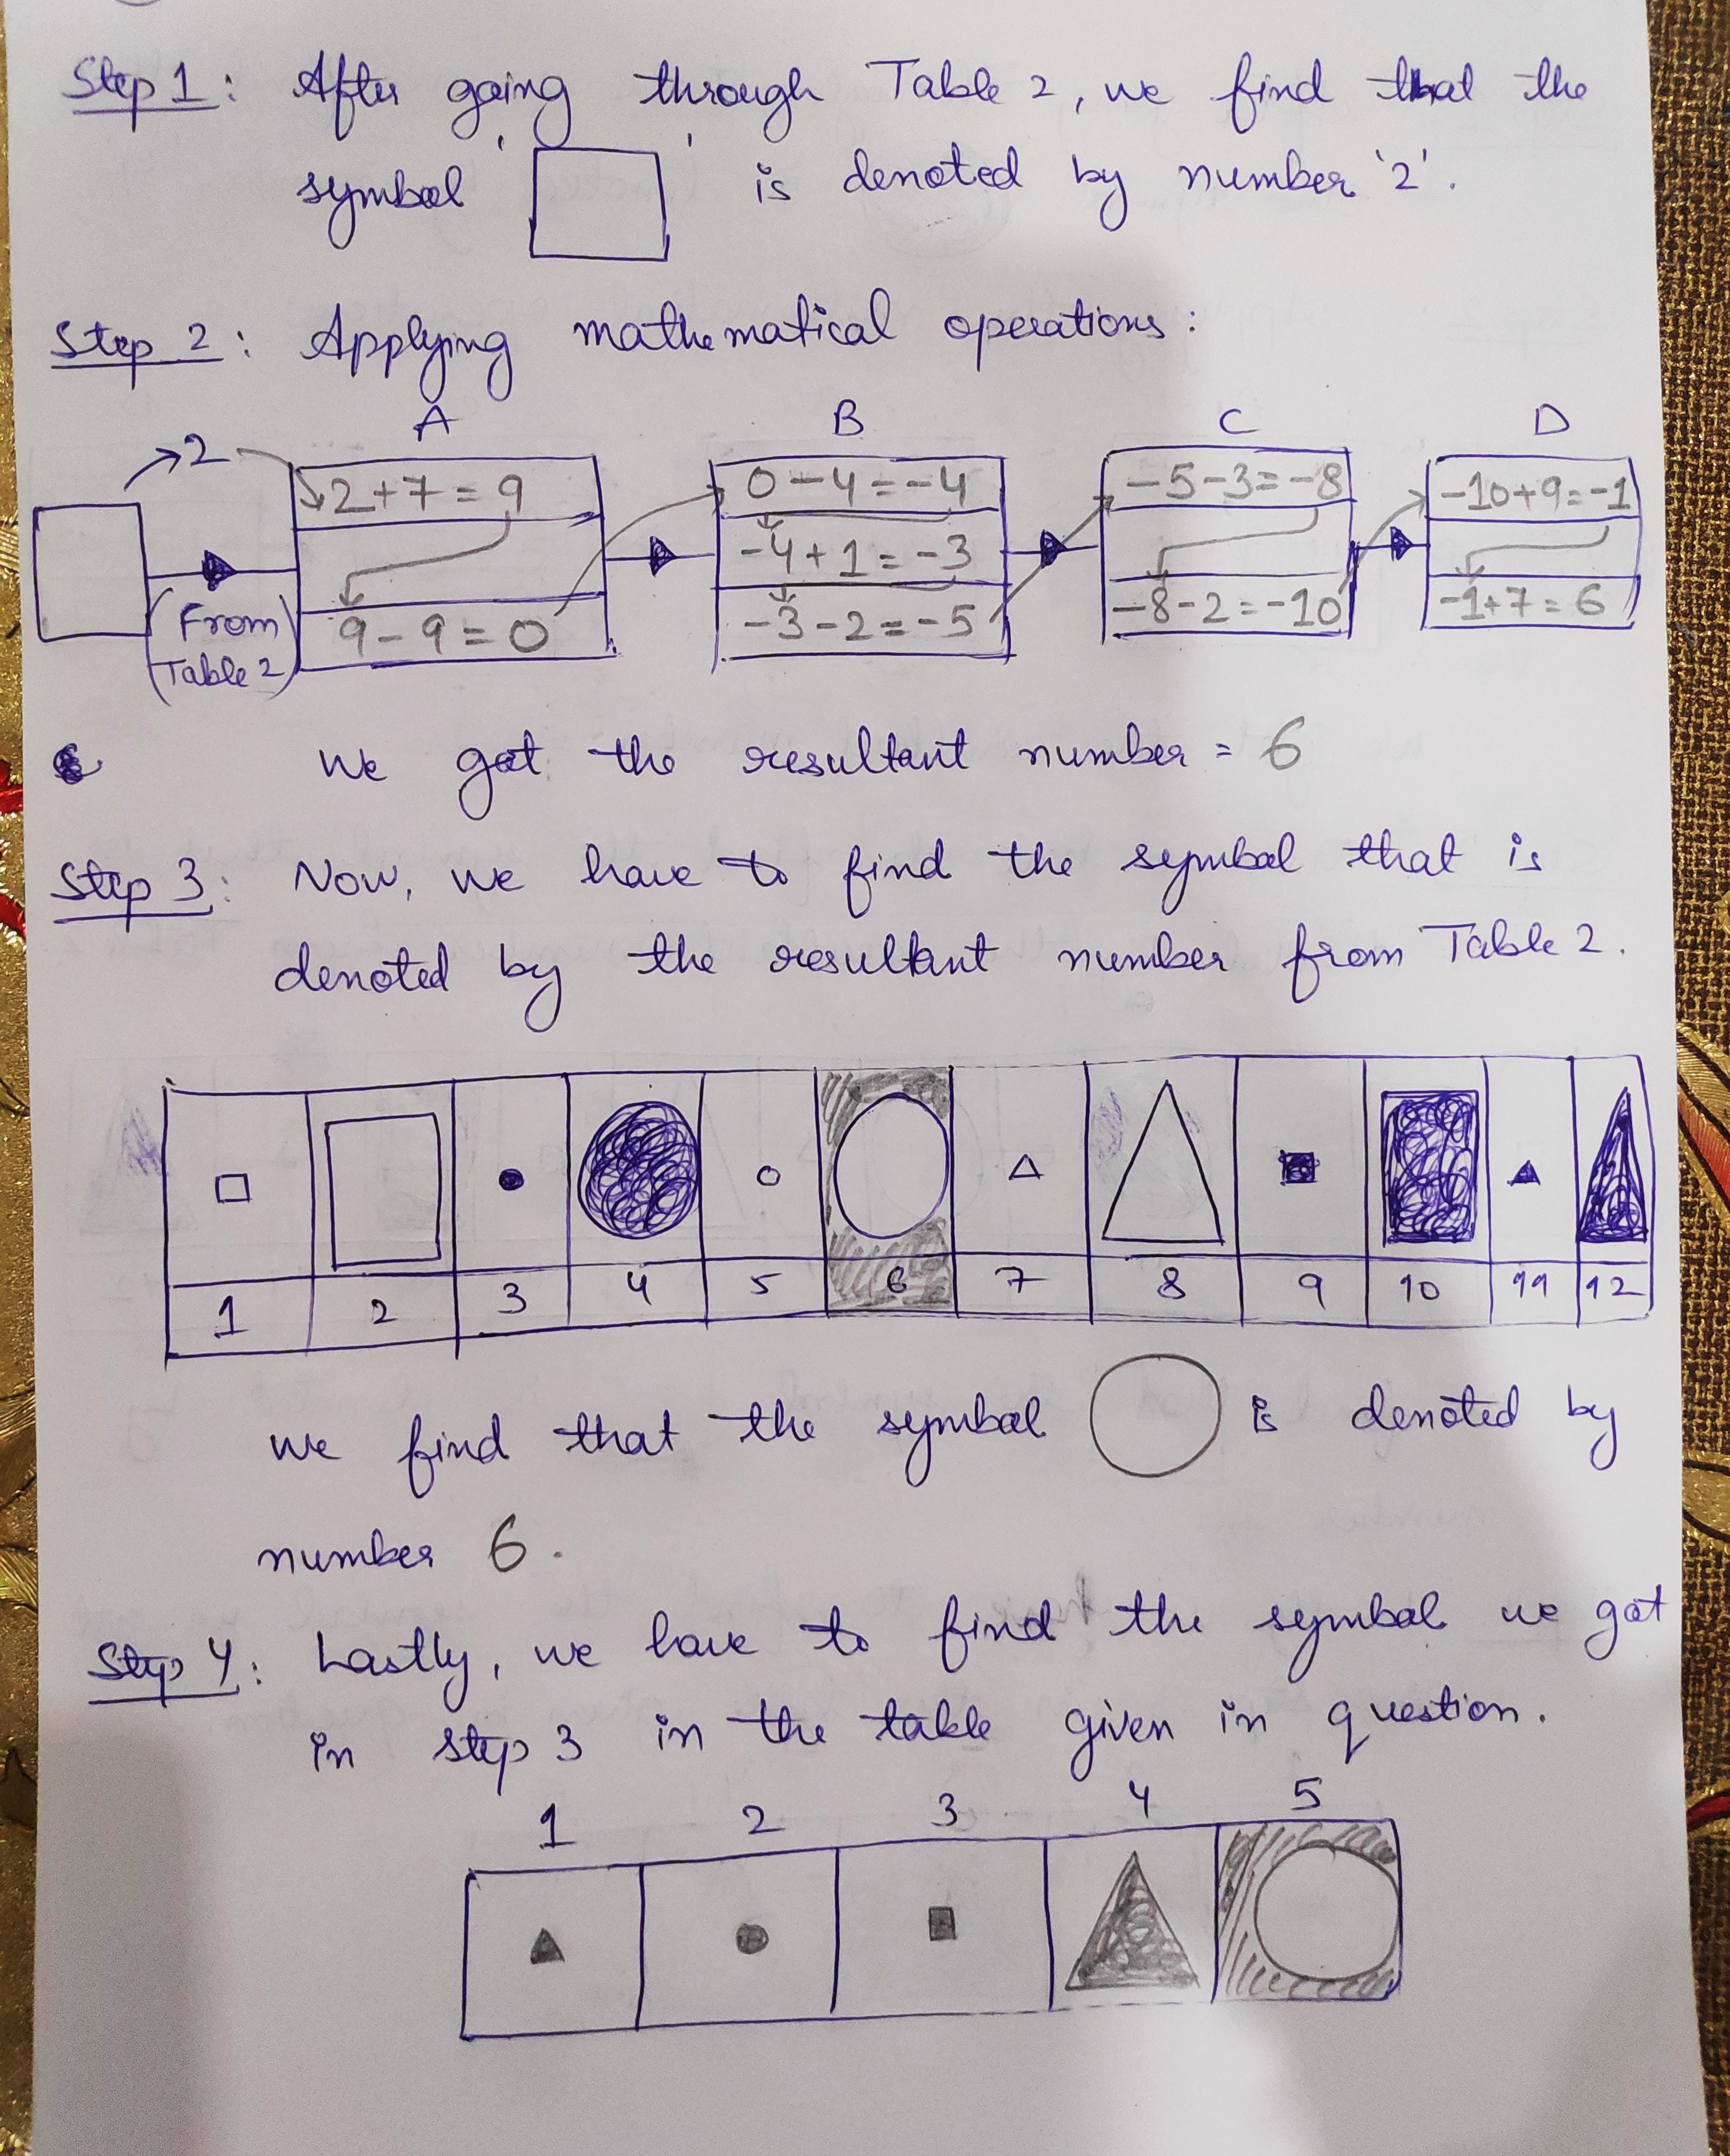 Step 1: After going through Table 2, we find that the
symbol ' ' is denoted by number '2'.
Step 2: Applying mathematical operations:
A B C D
2
2+7=9 0-4=-4 -5-3=-8 -10+9=-1
-4+1=-3
(From
Table 2)
9-9=0 -3-2=-5 -8-2=-10 -1+7=6
we got the resultant number = 6
Step 3: Now, we have to find the symbol that is
denoted by the resultant number from Table 2.
1 2 3 4 5 6 7 8 9 10 11 12
we find that the symbol is denoted by
number 6.
Step 4: Lastly, we have to find the symbol we got
in step 3 in the table given in question.
1 2 3 4 5